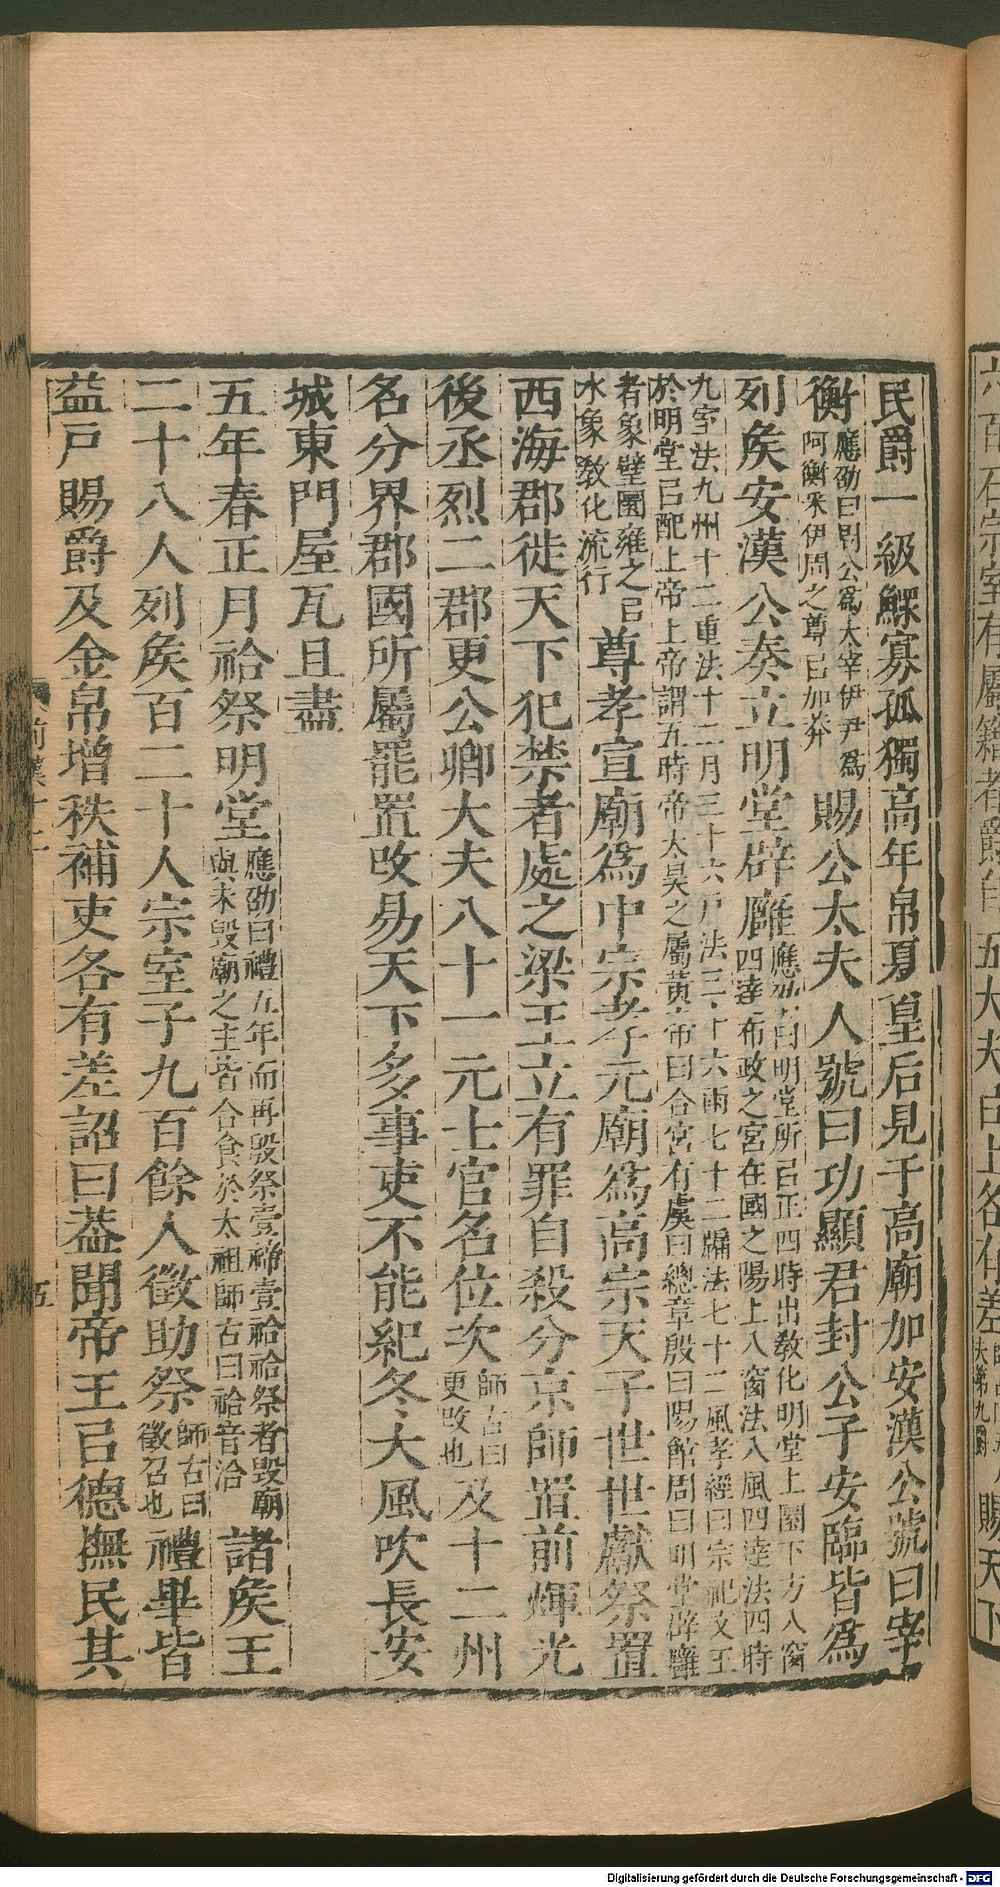 民爵一級鰥寡孤獨高年帛夏皇后見于高廟加安漢公號曰宰
衡應劭曰周公爲太宰伊尹爲阿衡采伊周之尊㠯加莽賜公太夫人號曰功顯君封公子安臨皆爲
列矦安漢公奏立明堂辟廱應劭曰明堂所㠯正四時出敎化明堂上圜下方八窗四達布政之宮在國之陽上八窗法八風四達法四時
九室法九州十二重法十二月三十六戶法三十六雨七十二牖法七十二風孝經曰宗祀文王於明堂㠯配上帝上帝謂五時帝太昊之屬黃帝曰合宮有虞曰總章殷曰陽館周曰明堂辟廱
者象璧圜雍之㠯水象敎化流行尊孝宣廟爲中宗孝元廟爲高宗天子世世獻祭置
西海郡徙天下犯禁者處之梁王立有罪自殺分京師置前煇光
後丞烈二郡更公卿大夫八十一元士官名位次師古曰更改也及十二州
名分界郡國所屬罷置改易天下多事吏不能紀冬大風吹長安
城東門屋瓦且盡
五年春正月祫祭明堂應劭曰禮五年而再殷祭壹禘壹祫祫祭者毁廟與未毁廟之主皆合食於太祖師古曰祫音洽諸矦王
二十八人列矦百二十人宗室子九百餘人徵助祭師古曰徵召也禮畢皆
益戶賜爵及金帛增秩補吏各有差詔曰葢聞帝王㠯德撫民其
前漢十二
五
賜天下
Digitalisierung gefördert durch die Deutsche Forschungsgemeinschaft - DFG